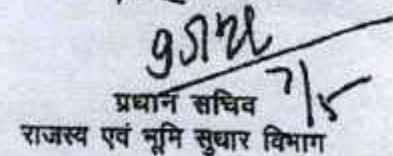 7/5
प्रधान सचिव
राजस्व एवं भूमि सुधार विभाग